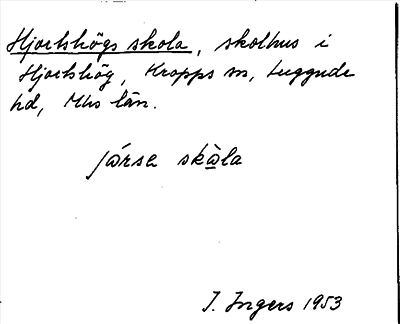 Hjortshögs skola, skolhus i
Hjortshög, Kropps sn, Luggude
hd, Mhs län.
jårsa skåla
I. Ingers 1953